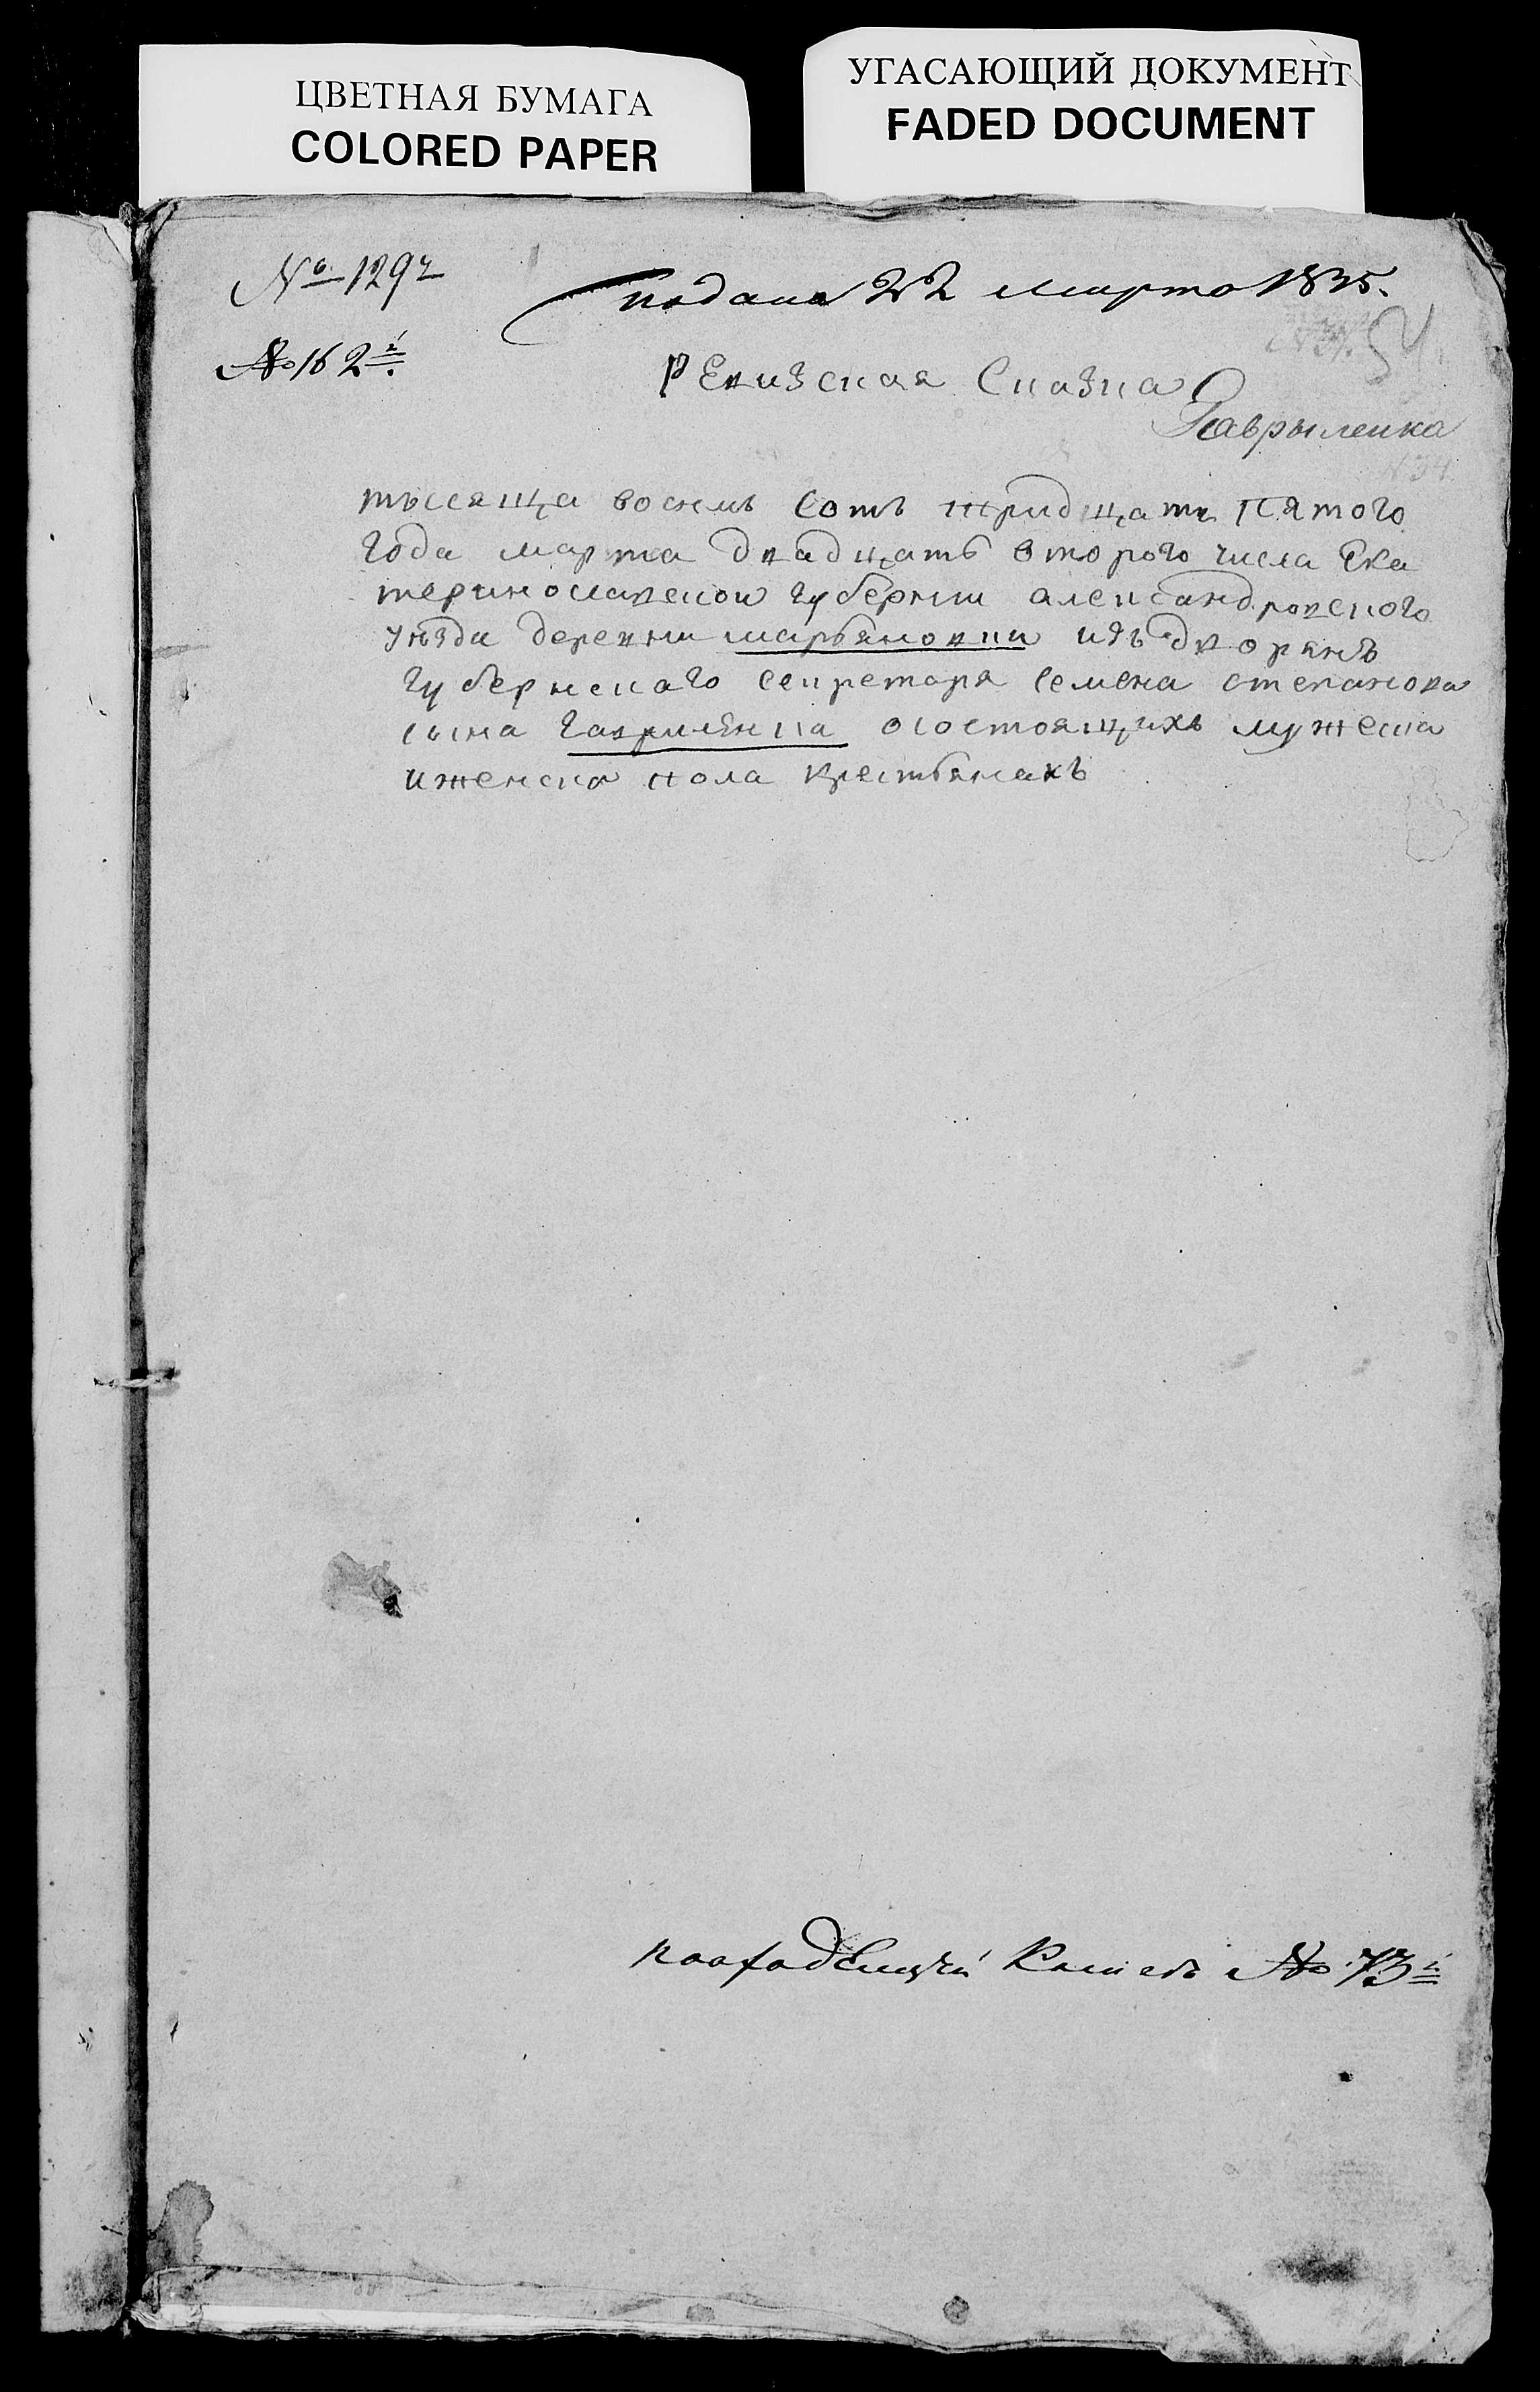 ЦВЕТНАЯ БУМАГА
COLORED PAPER
УГАСАЮЩИЙ ДОКУМЕНТ
FADED DOCUMENT
№ 129
подана 22 марта 1835.
№ 162й.
54
Ревизская Сказка
Гаврыленка
тысяща восемь Сотъ тридцать Пятого
года марта двадцать второго числа Ека
теринославской губернии александровского
уѣзда деревни марьяновки изъ дворянъ
губернского секретаря семена степанова
сына гавриленка осостоящихъ мужеска
иженска пола крестьянахъ
№ 73й